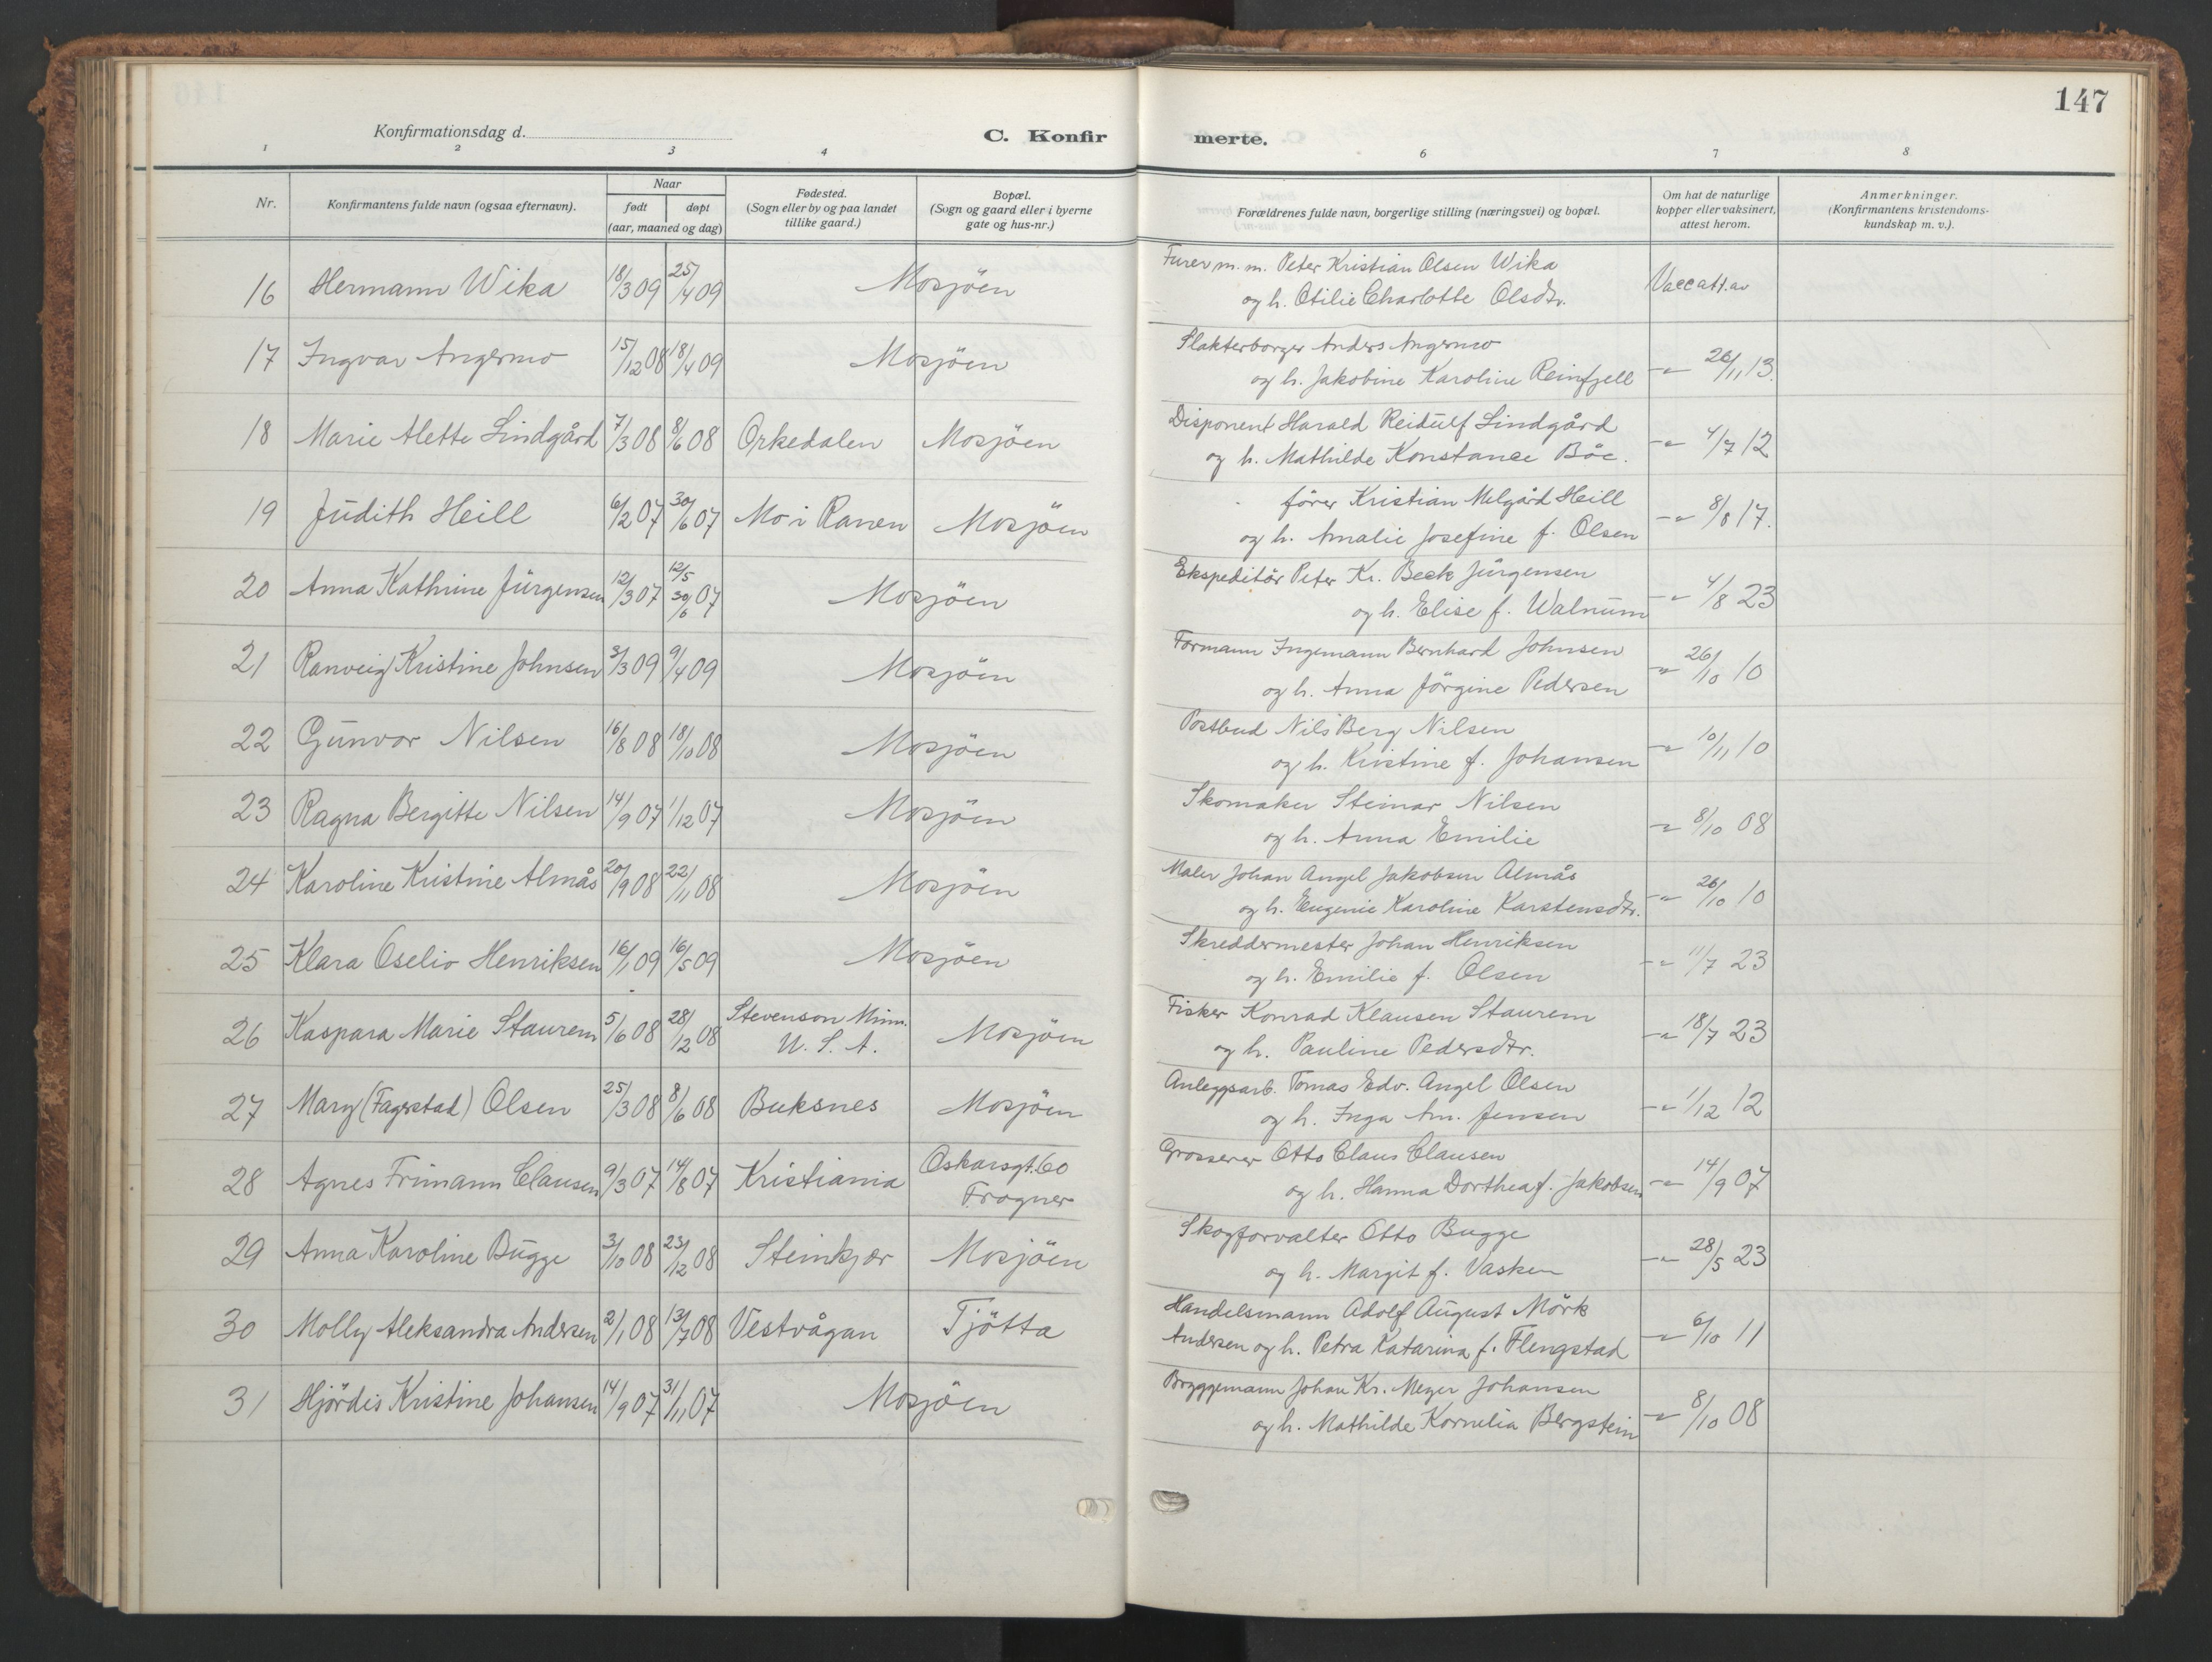 147
Konfirmationsdag d.
C. Konfir
merte.
1 2 3 4 6 7 8
Nr.
Konfirmantens fulde navn (ogsaa efternavn).
Naar
født døpt
(aar, maaned og dag)
Fødested.
(Sogn eller by og paa landet
tillike gaard.)
Bopæl.
(Sogn og gaard eller i byerne
gate og hus-nr.)
Forældrenes fulde navn, borgerlige stilling (næringsvei) og bopæl.
Om hat de naturlige
kopper eller vaksinert,
attest herom.
Anmerkninger.
(Konfirmantens kristendoms-
kundskap m. v.).
16 Hermann Wika 18/3 09 25/4 09 Mosjöen
Furer m. m. Peter Kristian Olsen Wika
og h. Otilie Charlotte Olsdtr.
Vacc att. av
17 Ingvar Angermo 15/12 08 18/4 09 Mosjöen
Slakterborger Anders Angermo
og h. Jakobine Karoline Reinfjell
-"- 26/11 13.
18 Marie Alette Lindgård 7/3 08 8/6 08 Orkedalen Mosjöen
Disponent Harald Reidulf Lindgård
og h. Mathilde Konstance Böe.
-"- 4/7 12
19 Judith Heill 6/2 07 30/6 07 Mo i Ranen Mosjöen
förer Kristian Melgård Heill
og h. Amalie Josefine f. Olsen
-"- 8/8 17.
20 Anna Kathrine Jürgensen 12/3 07 12/5 30/6 07 Mosjöen
Ekspeditör Peter Kr. Beck Jürgensen
og h. Elise f. Walnum
-"- 4/8 23
21 Ranveig Kristine Johnsen 3/3 09 9/4 09 Mosjöen
Formann Ingemann Bernhard Johnsen
og h. Anna Jörgine Pedersen
-"- 26/10 10
22 Gunvor Nilsen 16/8 08 18/10 08 Mosjöen
Postbud Nils Berg Nilsen
og h. Kristine f. Johansen
-"- 10/11 10
23 Ragna Bergitte Nilsen 14/9 07 1/12 07 Mosjöen
Skomaker Steinar Nilsen
og h. Anna Emilie
-"- 8/10 08
24 Karoline Kristine Almås 20/9 08 22/11 08 Mosjöen
Maler Johan Angel Jakobsen Almås
og h. Eugenie Karoline Karstensdtr.
-"- 26/10 10
25 Klara Oselio Henriksen 16/1 09 16/5 09 Mosjöen
Skreddermester Johan Henriksen
og h. Emilie f. Olsen
-"- 11/7 23
26 Kaspara Marie Staurem 5/6 08 28/12 08 Stevenson Minn. U. S. A. Mosjöen
Fisker Konrad Klausen Staurem
og h. Pauline Pedersdtr.
-"- 18/7 23
27 Mary (Fagerstad) Olsen 25/3 08 8/6 08 Buksnes Mosjöen
Anleggsarb. Tomas Edv. Angel Olsen
og h. Inga An. Jensen
-"- 1/12 12
28 Agnes Frimann Clausen 9/3 07 14/8 07 Kristiania Oskarsgt. 60 Frogner
Grosserer Otto Claus Clausen
og h. Hanna Dorthea f. Jakobsen
-"- 14/9 07
29 Anna Karoline Bugge 3/10 08 23/12 08 Steinkjær Mosjöen
Skogforvalter Otto Bugge
og h. Margit f. Vasken
-"- 28/5 23
30 Molly Aleksandra Andersen 2/1 08 13/7 08 Vestvågan Tjötta
Handelsmann Adolf August Mörk
Andersen og h. Petra Katarina f. Flengstad
-"- 6/10 11
31 Hjördis Kristine Johansen 14/9 07 31/11 07 Mosjöen
Bryggemann Johan Kr. Meyer Johansen
og h. Mathilde Kornelia Bergstein
-"- 8/10 08